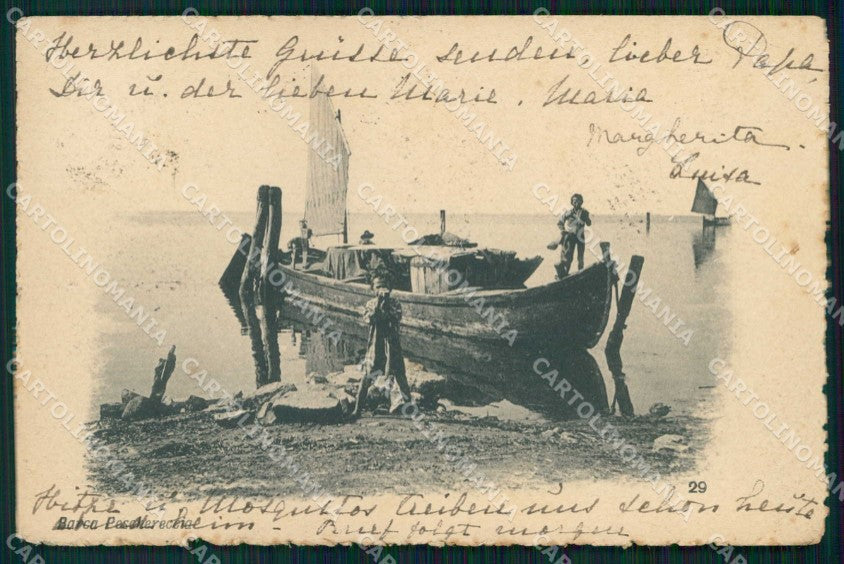 Herzlichste Grüsse senden, lieber Papa,
Dir u. der lieben Marie. Maria
Margherita.
Luisa
29
Hitze u. Mosquittos treiben uns schon heute
Barca Peschereccia
heim - Brief folgt morgen
CARTOLINOMANIA